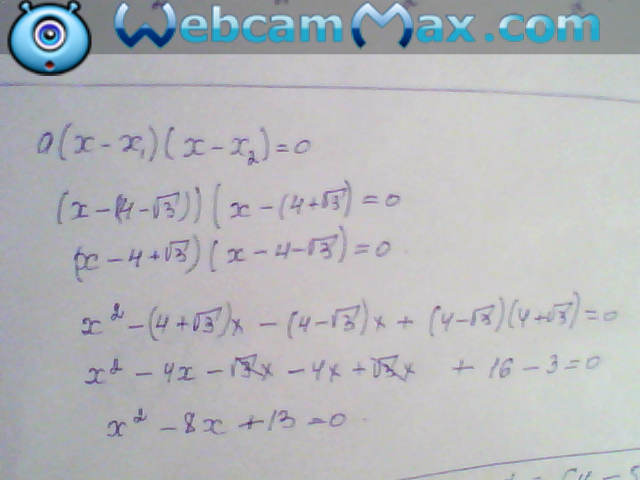 WebcamMax.com
a(x - x₁)(x - x₂) = 0
(x - (4 - √3))(x - (4 + √3) = 0
(x - 4 + √3)(x - 4 - √3) = 0
x² - (4 + √3)x - (4 - √3)x + (4 - √3)(4 + √3) = 0
x² - 4x - √3x - 4x + √3x + 16 - 3 = 0
x² - 8x + 13 = 0